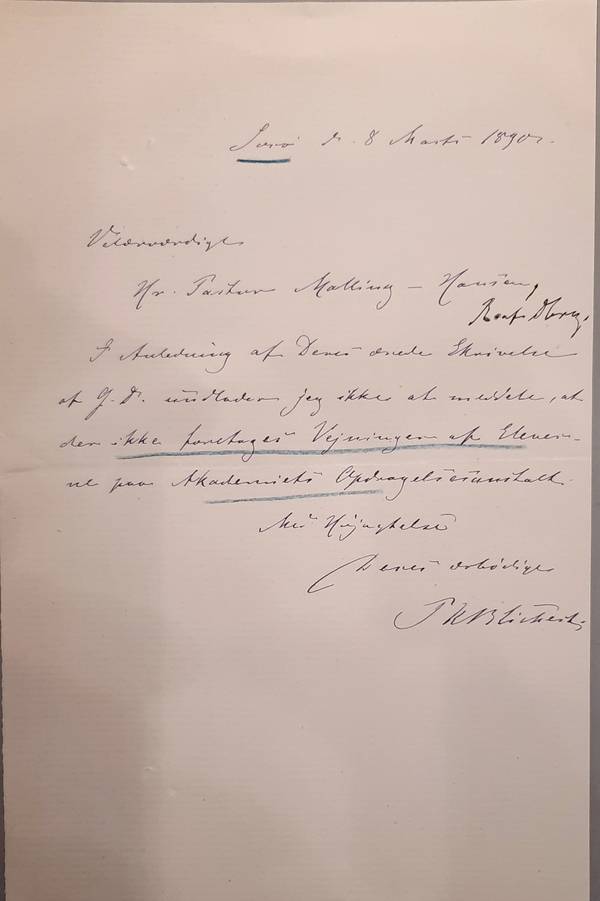 Sorø d. 8 Marts 1890.
Velærværdige
Hr. Pastor Malling-Hansen,
R. af Dbrg.
I Anledning af Deres ærede Skrivelse
af G. D. undlader jeg ikke at meddele, at
der ikke foretages Vejninger af Elever-
ne paa Akademiets Opdragelsesanstalt.
Med Højagtelse
Deres ærbødige
Blichert